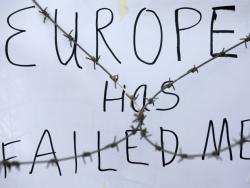 EUROPE
HaS
FAILED ME